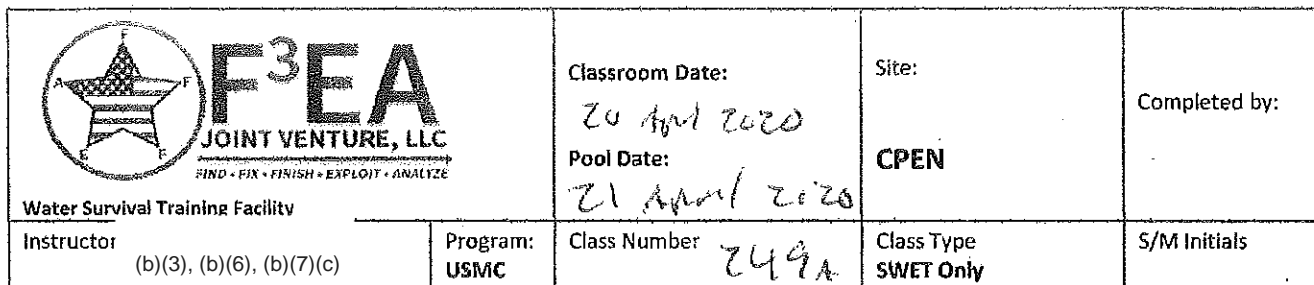 F
A F
E F
F³EA
JOINT VENTURE, LLC
FIND • FIX • FINISH • EXPLOIT • ANALYZE
Water Survival Training Facility
Classroom Date:
20 April 2020
Pool Date:
21 April 2020
Site:
CPEN
Completed by:
Instructor
(b)(3), (b)(6), (b)(7)(c)
Program:
USMC
Class Number
249A
Class Type
SWET Only
S/M Initials